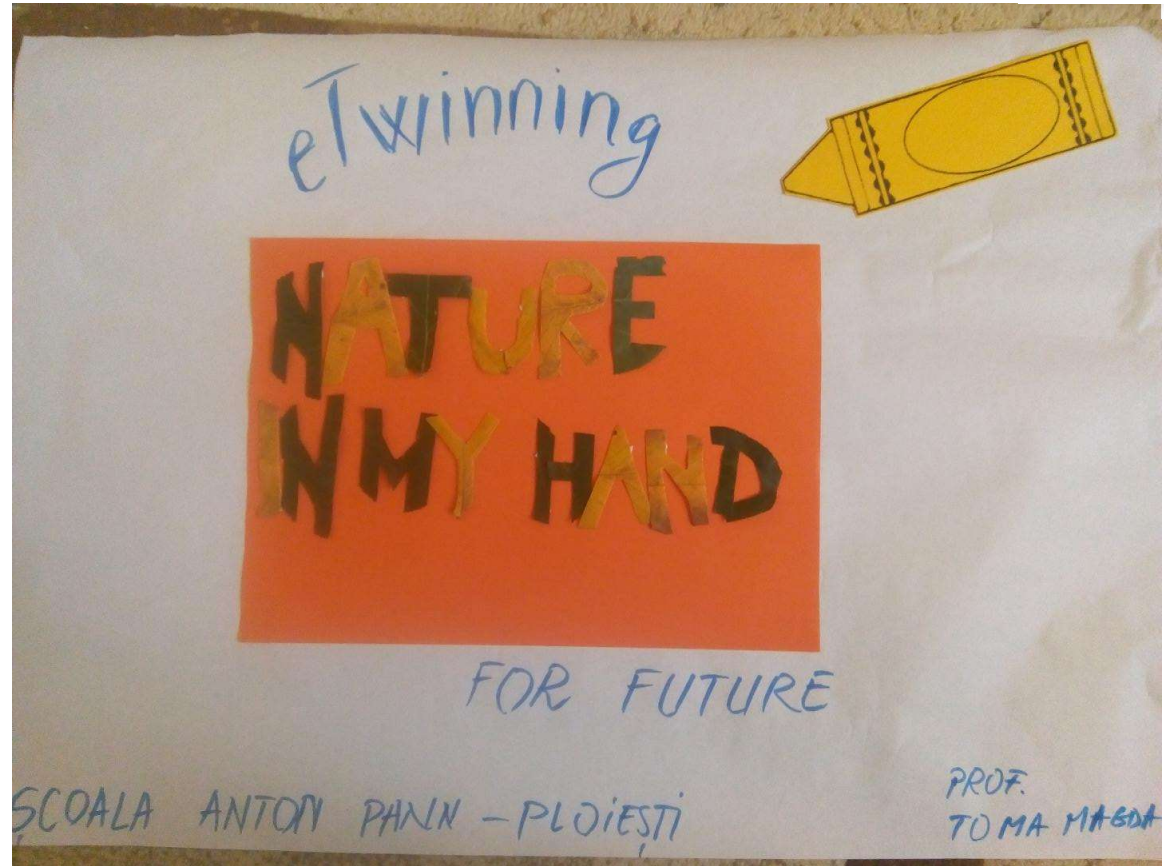 eTwinning
NATURE
IN MY HAND
FOR FUTURE
ȘCOALA ANTON PANN - PLOIEȘTI
PROF.
TOMA MAGDA